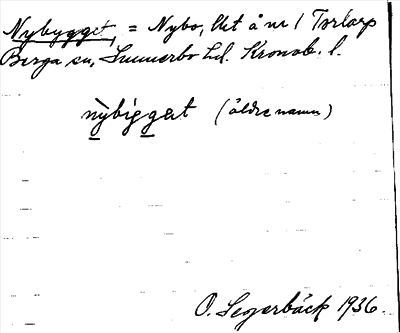 Nybygget, = Nybo, lht å nr 1 Torlarp
Berga sn, Sunnerbo hd. Kronob. l.
nybiggat (äldre namn)
O. Segerbäck 1936.